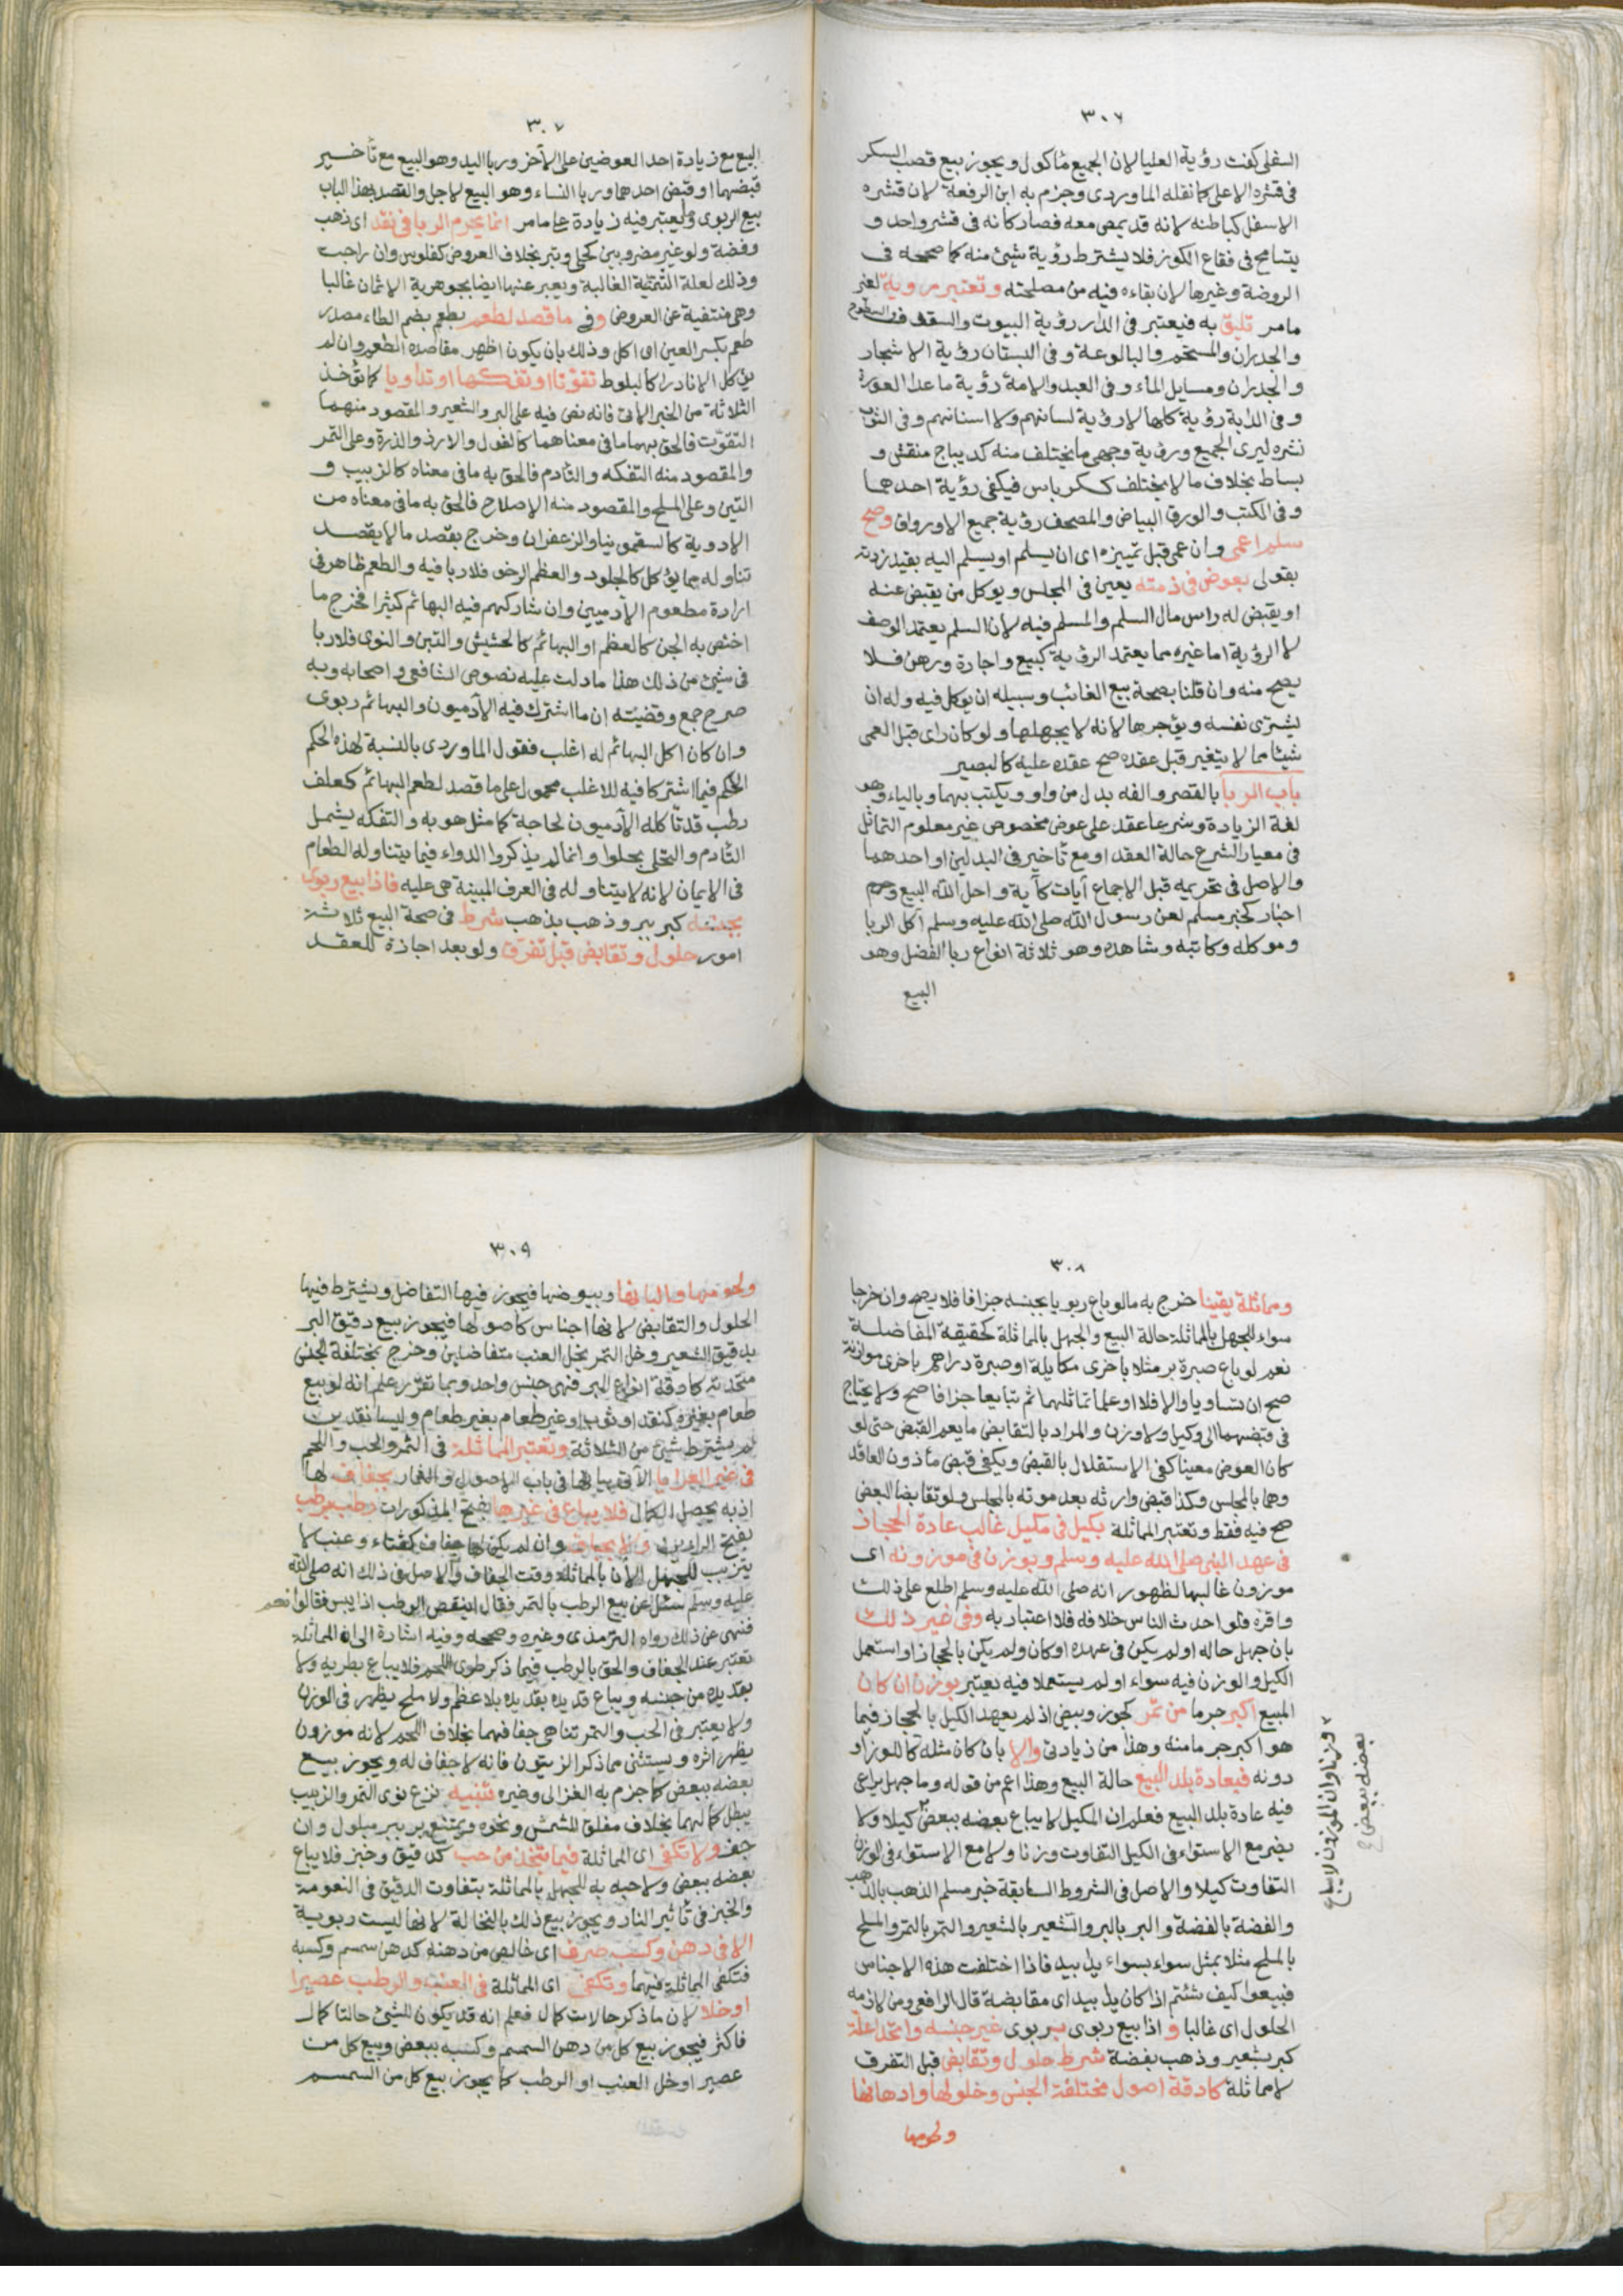 ٣٠٦
السفلى كفت رؤية العليا لان الجميع مأكول ويجوز بيع قصب السكر
فى قشره الاعلى كما نقله الماوردى وجزم به ابن الرفعة لان قشره
الاسفل كباطنه لانه قد يمص معه فصار كانه فى قشر واحد و
يتسامح فى فقاع الكوز فلا يشترط رؤية شئ منه كما صححه فى
الروضة وغيرها لان بقاءه فيه من مصلحته وتعتبر مروية لغير
مامر تليق به فيعتبر فى الدار رؤية البيوت والسقف والسطوح
والجدران والمستحم والبالوعة وفى البستان رؤية الاشجار
والجدران ومسايل الماء وفى العبد والامة رؤية ماعدا العورة
وفى الدابة رؤية كلها لا رؤية لسانهم ولا اسنانهم وفى الثوب
نشره ليرى الجميع ورؤية وجهى ما يختلف منه كديباج منقش و
بساط بخلاف ما لا يختلف ككرباس فيكفى رؤية احدهما
وفى الكتب والورق البياض والمصحف رؤية جميع الاوراق وصح
سلم اعمى وان عمى قبل تمييزه اى ان يسلم او يسلم اليه بقيد زدته
بقولى بعوض فى ذمته يعين فى المجلس ويوكل من يقبض عنه
او يقبض له راس مال السلم والمسلم فيه لان السلم يعتمد الوصف
لا الرؤية اما غيره مما يعتمد الرؤية كبيع واجارة ورهن فلا
يصح منه وان قلنا بصحة بيع الغائب وسبيله ان يوكل فيه وله ان
يشترى نفسه ويؤجرها لانه لا يجهلها ولو كان راى قبل العمى
شيئا مما لا يتغير قبل عقده صح عقده عليه كالبصير
باب الربا بالقصر والفه بدل من واو ويكتب بهما وبالياء وهو
لغة الزيادة وشرعا عقد على عوض مخصوص غير معلوم التماثل
فى معيار الشرع حالة العقد او مع تأخير فى البدلين او احدهما
والاصل فى تحريمه قبل الاجماع آيات كآية واحل الله البيع وحرم
اخبار كخبر مسلم لعن رسول الله صلى الله عليه وسلم آكل الربا
وموكله وكاتبه وشاهده وهو ثلاثة انواع ربا الفضل وهو
البيع
٣٠٧
البيع مع زيادة احد العوضين على الآخر وربا اليد وهو البيع مع تأخير
قبضهما او قبض احدهما وربا النساء وهو البيع لاجل والقصد بهذا الباب
بيع الربوى وما يعتبر فيه زيادة على مامر انما يحرم الربا فى نقد اى ذهب
وفضة ولو غير مضروبين كحلى وتبر بخلاف العروض كفلوس وان راجت
وذلك لعلة الثمنية الغالبة ويعبر عنها ايضا بجوهرية الاثمان غالبا
وهى منتفية عن العروض وفى ما قصد لطعم بطعم بضم الطاء مصدر
طعم بكسر العين اى اكل وذلك بان يكون اظهر مقاصده الطعم وان لم
يؤكل الا نادرا كالبلوط تقوتا او تفكها او تداويا كما تؤخذ
الثلاثة من الخبر الاتى فانه نص فيه على البر والشعير والمقصود منهما
التقوت فالحق بهما ما فى معناهما كالفول والارز والذرة وعلى التمر
والمقصود منه التفكه والتأدم فالحق به ما فى معناه كالزبيب و
التين وعلى الملح والمقصود منه الاصلاح فالحق به ما فى معناه من
الادوية كالسقمونيا والزعفران وخرج بقصد ما لا يقصد
تناوله مما يؤكل كالجلود والعظم الرخو فلا ربا فيه والطعم ظاهر فى
ارادة مطعوم الآدميين وان شاركهم فيه البهائم كثيرا فخرج ما
اختص به الجن كالعظم او البهائم كالحشيش والتبن والنوى فلا ربا
فى شئ من ذلك هذا ما دلت عليه نصوص الشافعى واصحابه وبه
صرح جمع وقضيته ان ما اشترك فيه الآدميون والبهائم ربوى
وان كان اكل البهائم له اغلب فقول الماوردى بالنسبة لهذه الحكم
الحكم فيما اشتركا فيه للاغلب محمول على ما قصد لطعم البهائم كعلف
رطب قد تأكله الآدميون لحاجة كما مثل هو به والتفكه يشمل
التأدم والتحلى بحلوا وانما لم يذكروا الدواء فيما يتناوله الطعام
فى الايمان لانه لا يتناوله فى العرف المبينة هى عليه فاذا بيع ربوى
بجنسه كبر ببر وذهب بذهب شرط فى صحة البيع ثلاثة
امور حلول وتقابض قبل تفرق ولو بعد اجازة للعقد
٣٠٨
ومماثلة يقينا خرج به ما لو باع ربويا بجنسه جزافا فلا يصح وان خرجا
سواء للجهل بالمماثلة حالة البيع والجهل بالمماثلة كحقيقة المفاضلة
نعم لو باع صبرة بر مثلا باخرى مكايلة او صبرة دراهم باخرى موازنة
صح ان تساويا والا فلا او علما تماثلهما ثم تبايعا جزافا صح ولا يحتاج
فى قبضهما الى وكيل ولا وزن والمراد بالتقابض ما يعم القبض حتى لو
كان العوض معينا كفى الاستقلال بالقبض ويكفى قبض مأذون العاقد
وهما بالمجلس وكذا قبض وارثه بعد موته بالمجلس ولو تقابضا البعض
صح فيه فقط وتعتبر المماثلة بكيل فى مكيل غالب عادة الحجاز
فى عهد النبى صلى الله عليه وسلم وبوزن فى موزونه اى
موزون غالبها لظهور انه صلى الله عليه وسلم اطلع على ذلك
واقره فلو احدث الناس خلافه فلا اعتبار به وفى غير ذلك
بان جهل حاله او لم يكن فى عهده او كان ولم يكن بالحجاز او استعمل
الكيل والوزن فيه سواء او لم يستعملا فيه يعتبر بوزن ان كان
المبيع اكبر جرما من تمر كجوز وبيض اذ لم يعهد الكيل بالحجاز فيما
هو اكبر جرما منه وهذا من زيادتى والا بان كان مثله كاللوز او
دونه فبعادة بلد البيع حالة البيع وهذا اعم من قوله وما جهل يراعى
فيه عادة بلد البيع فعلم ان المكيل لا يباع بعضه ببعض كيلا ولا
يضر مع الاستواء فى الكيل التفاوت وزنا ولا مع الاستواء فى الوزن
التفاوت كيلا والاصل فى الشروط السابقة خبر مسلم الذهب بالذهب
والفضة بالفضة والبر بالبر والشعير بالشعير والتمر بالتمر والملح
بالملح مثلا بمثل سواء بسواء يدا بيد فاذا اختلفت هذه الاجناس
فبيعوا كيف شئتم اذا كان يدا بيد اى مقابضة قال الرافعى ومن لازمه
الحلول اى غالبا و اذا بيع ربوى بربوى غير جنسه واتحدا علة
كبر بشعير وذهب بفضة شرط حلول وتقابض قبل التفرق
لا مماثلة كادقة اصول مختلفة الجنس وخلولها وادهانها
ولحومها
وزنا وان الموزون لا يباع
بعضه ببعض
٣٠٩
ولحومها والبانها وبيوضها فيجوز فيها التفاضل ويشترط فيها
الحلول والتقابض لانها اجناس كاصولها فيجوز بيع دقيق البر
بدقيق الشعير وخل التمر بخل العنب متفاضلين وخرج بمختلفة الجنس
متحدته كادقة انواع البر فهى جنس واحد وبما تقرر علم انه لو بيع
طعام بغيره كنقد او ثوب او غير طعام بغير طعام وليسا نقدين
لم يشترط شئ من الثلاثة وتعتبر المماثلة فى الثمر والحب واللحم
فى غير العرايا الآتى بيانها فى باب الاصول والثمار بجفاف لها
اذ به يحصل الكمال فلا يباع فى غيرها بفتح المذكورات رطب برطب
بفتح الراءين ولا بجاف وان لم يكن لها جفاف كقثاء وعنب لا
يتزبب للجهل الآن بالمماثلة وقت الجفاف والاصل فى ذلك انه صلى الله
عليه وسلم سئل عن بيع الرطب بالتمر فقال اينقص الرطب اذا يبس فقالوا نعم
فنهى عن ذلك رواه الترمذى وغيره وصححه وفيه اشارة الى ان المماثلة
تعتبر عند الجفاف والحق بالرطب فيما ذكر طرى اللحم فلا يباع بطريه ولا
بقديده من جنسه ويباع قديده بقديده بلا عظم ولا ملح يظهر فى الوزن
ولا يعتبر فى الحب والتمر تناهى جفافهما بخلاف اللحم لانه موزون
يظهر اثره ويستثنى مما ذكر الزيتون فانه لا جفاف له ويجوز بيع
بعضه ببعض كما جزم به الغزالى وغيره تنبيه نزع نوى التمر والزبيب
يبطل كمالهما بخلاف مفلق المشمش ونحوه ويمتنع بر ببر مبلول وان
جف ولا تكفى اى المماثلة فيما يتخذ من حب كدقيق وخبز فلا يباع
بعضه ببعض ولا حبه به للجهل بالمماثلة بتفاوت الدقيق فى النعومة
والخبز فى تأثير النار ويجوز بيع ذلك بالنخالة لانها ليست ربوية
الا فى دهن وكسب صرف اى خالص من دهنه كدهن سمسم وكسبه
فتكفى المماثلة فيهما وتكفى اى المماثلة فى العنب والرطب عصيرا
او خلا لان ما ذكر حالات كمال فعلم انه قد يكون للشئ حالتا كمال
فاكثر فيجوز بيع كل من دهن السمسم وكسبه ببعض وبيع كل من
عصير او خل العنب او الرطب كما يجوز بيع كل من السمسم